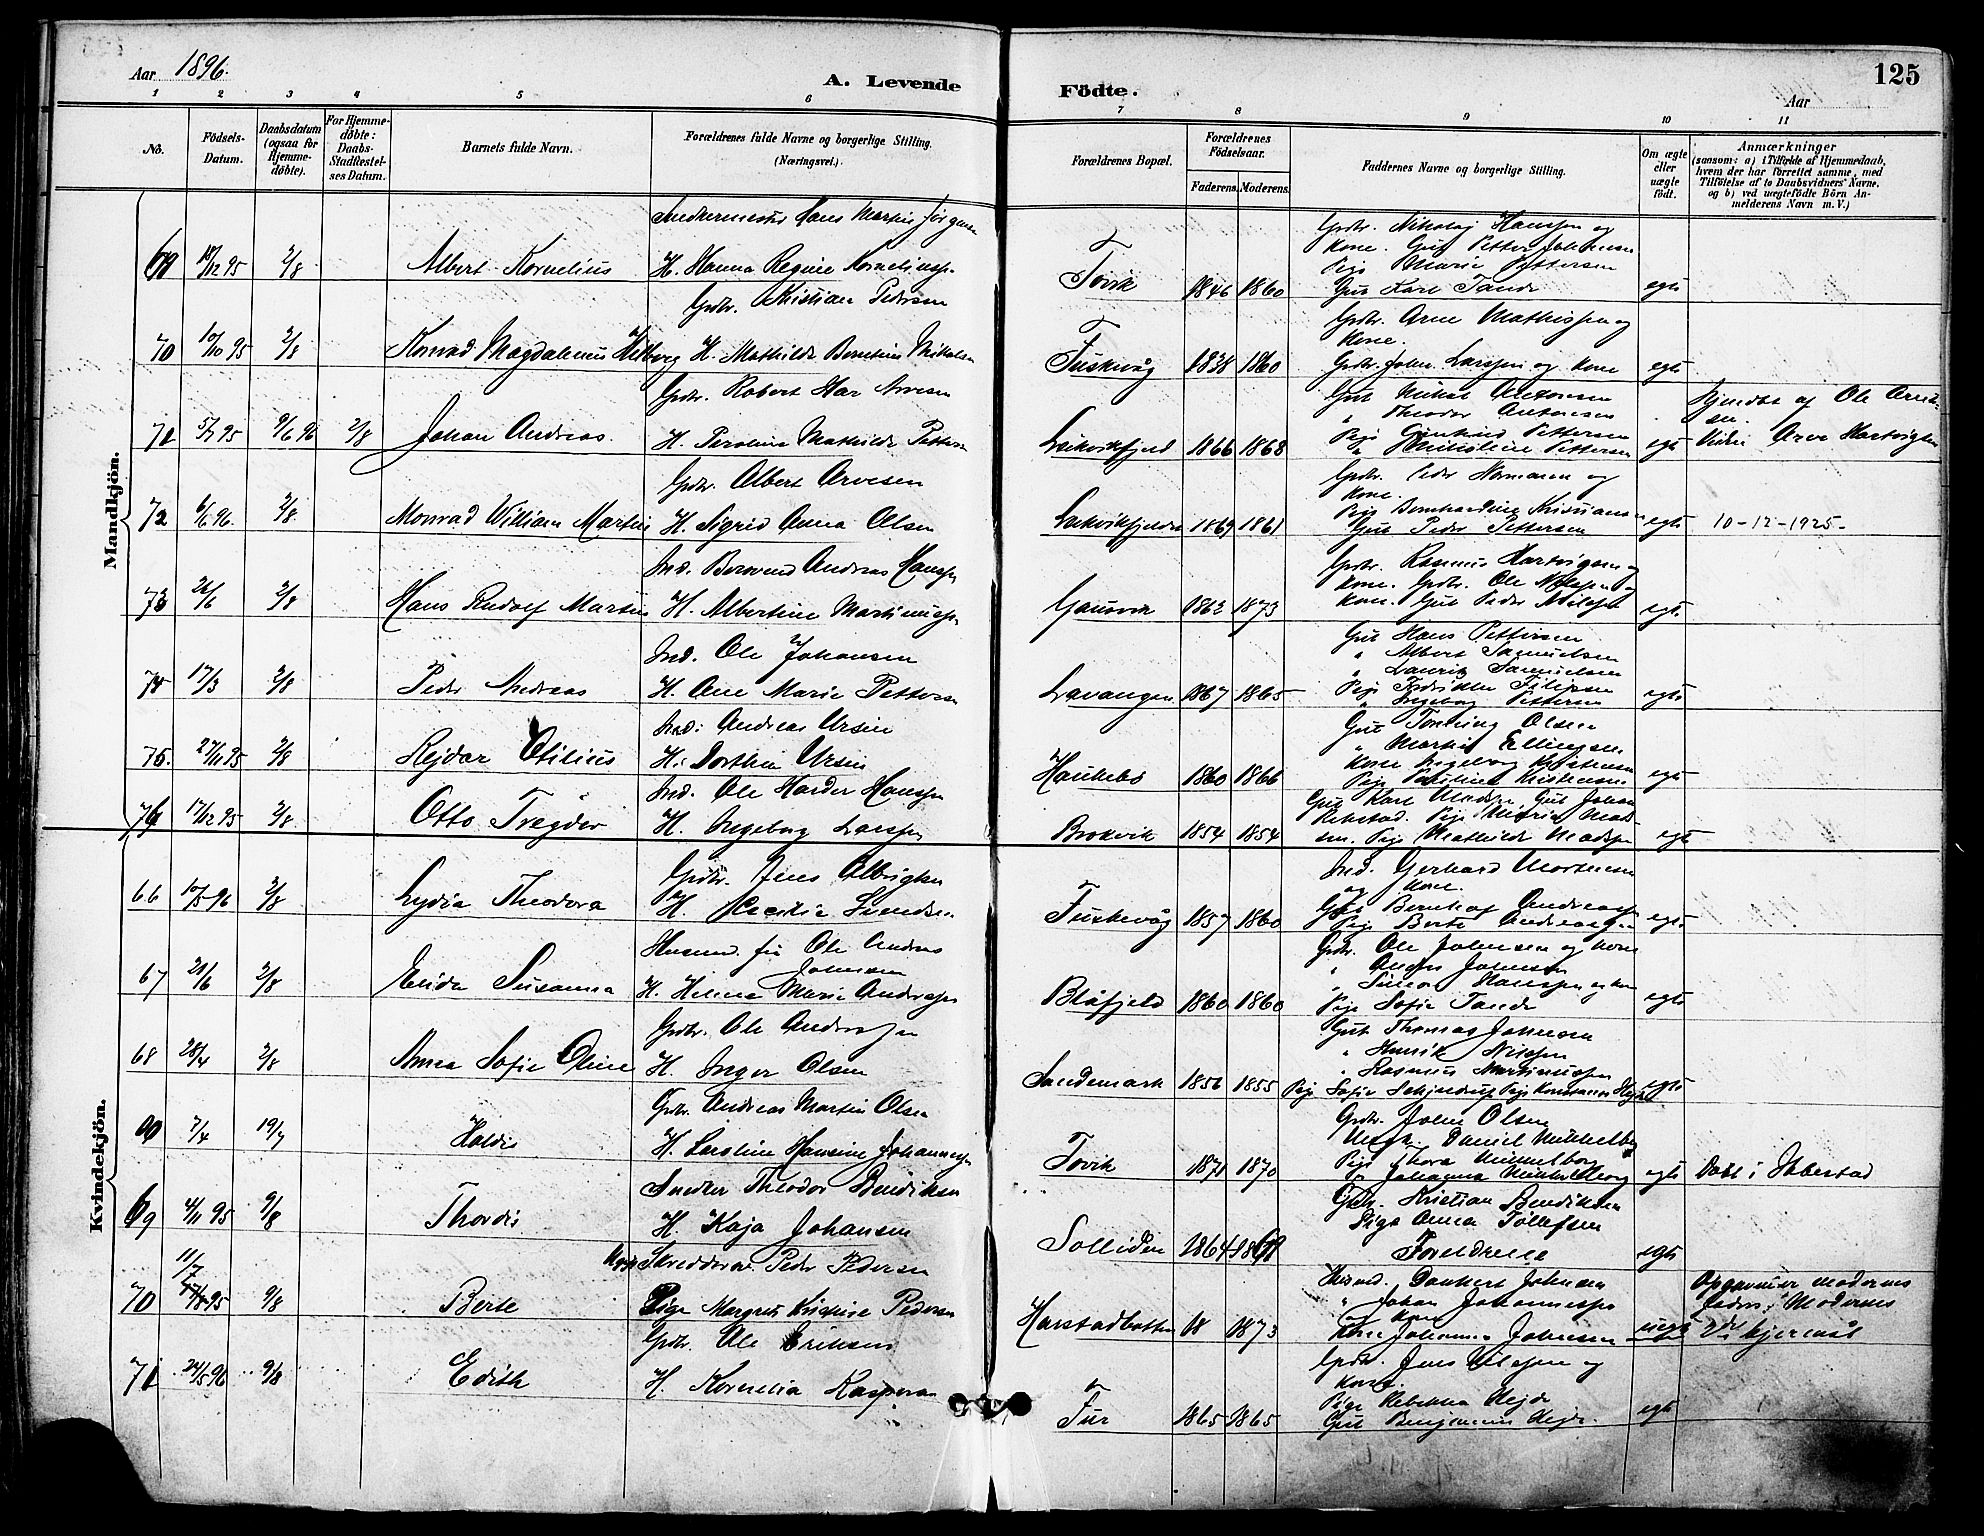 Aar 1896.
A. Levende Födte.
125
Aar
1 2 3 4 5 6 7 8 9 10 11
No.
Födsels-Datum.
Daabsdatum (ogsaa for Hjemmedöbte).
For Hjemmedöbte: Daabs-Stadfestelses Datum.
Barnets fulde Navn.
Forældrenes fulde Navne og borgerlige Stilling. (Næringsvei.)
Forældrenes Bopæl.
Forældrenes Födselsaar.
Faderens. Moderens.
Faddernes Navne og borgerlige Stilling.
Om ægte eller uægte födt.
Anmærkninger
(saasom: a) i Tilfælde af Hjemmedaab, hvem der har forrettet samme, med Tilföielse af to Daabsvidners Navne, og b) ved uægtefödte Börn Anmelderens Navn m. V.)
Mandkjön.
69 18/12 95 2/8 Albert Kornelius
Hans Martin Jörgensen
H. Hanna Regine Korneliusp.
Tovik 1846 1860
Gbr. Nikolaj Hanssen og
Kone. Gut Petter Johansen
Pige Marie Pettersen
Gut Karl Tande
egte
70 10/10 95 2/8 Konrad Magdalenus Hilberg
Gbr. Kristian Pedersen
H. Mathilde Berntine Mikalsen
Fuskevåg 1838 1860
Gbr. Arne Mathissen og
Kone.
Gbr. John Larssen og Kone
egte
71 5/7 95 9/6 96 2/8 Johan Andreas.
Gbr. Robert Arvesen
H. Peroline Mathilde Petters
Leikvikfjeld 1866 1868
Gut Mikal Antonsen
" Theodor Antonsen
Pige Pettersen
" Pettersen
egte
Hjemdøbt af Ole Arntsen.
Arve Hartvigsen
72 6/6 96. 2/8. Monrad William Martin
Gbr. Albert Arvesen
H. Sigrid Anna Olsen
Leikvikfjeldet 1869 1861
Gbr. Peder Normann og
Kone.
Pige Bernhardine Kristiansen
Gut Peder Pettersen
egte
10-12-1925-
73 26/6 2/8 Hans Rudolf Martin
Ind. Andreas Hanssen
H. Albertine Martinussen
Gausvik 1862 1873
Gbr. Rasmus Hartvigsen og
Kone. Gbr. Ole Nilssen og
Kone. Gut Peder Nilssen
egte.
74 17/3 2/8 Peder Andreas
Ind. Ole Johansen
H. Ane Marie Pettersen
Lavangen 1867 1865
Gut Hans Pettersen
" Albert Samuelsen
" Lauritz Samuelsen
Pige Fredrikke Filipsen
" Ingeborg Pettersen
egte
75. 27/11 95 2/8 Rejdar Otilius
Ind. Andreas Ursin
H. Dorthea Ursin
Haukebø 1860 1866
Gut Olsen
" Martin Ellingsen
Kone Ingeborg Kristensen
Pige Pauline Kristensen
egte
76 17/12 95 2/8. Otto Tregder
Ind. Ole Hansen
H. Ingeborg Larssen
Brokvik 1854 1854
Gut Karl Madsen, Gut Johan
Rekstad. Pige Maria Madsen.
Pige Mathilde Madsen
egte
Kvindekjön.
66 10/5 96 2/8 Lydia Theodora
Gbr. Jens Albrigtsen
H. Cecilie Svendsen
Fuskevåg 1857 1860
Ind. Gerhard Mortensen
og Kone.
Gut Bernhof Andreassen
Pige Berte Andreassen
egte
67 21/6 2/8 Elida Susanna
Husmd. Ole Andreas
Johnsen
H. Helena Marie Andreassen
Blåfjeld 1860 1860
Gbr. Ole Johnsen og Kone
" Anders Johnsen
" Simon Hanssen og Kone
Pige Sofie Tande
egte
68 28/4 2/8 Anna Sofie Oline
Gbr. Ole Andreassen
H. Inger Olsen
Sandemark 1856 1855
Gut Thomas Johnsen
" Henrik Nilssen
" Rasmus Martinussen
Pige Sofie Schjelderup Pige Konstanse
egte
7/4 19/7 Haldis
Gbr. Andreas Martin Olsen
H. Caroline Hansine Johannessen
Tovik 1871 1870
Gbr. John Olsen
Daniel Mikkelborg
Pige Thora Mikkelborg
" Johanna Mikkelborg
egte
Døbt i Ibbestad
69 4/11 95 9/8 Thordis
Snedker Theodor Bendiksen
H. Kaja Johansen
Solliden 1864 1869
Gbr. Kristian Bendiksen
Pige Anna Tollefsen
Foreldrene
egte
70 11/7 95 9/8 Berte
Skredder Peder Pedersen
Pige Margrete Kristine Pedersen
Harstadbotten 18 1873
Husmd. Dankert Johnsen
" Johan Johannessen
og Kone
Kone Johanna Johnsen
uegte
Opgavener Modernes
Fader, Modernes
2det Leiermål
71 24/5 96 9/8 Edith
Gbr. Ole Eriksen
H. Kornelia Kaspersen
Fur 1865 1865
Gbr. Jens Nilssen og
Kone.
Pige Rebekka Hejde
Gut Benjamin Hejde.
egte